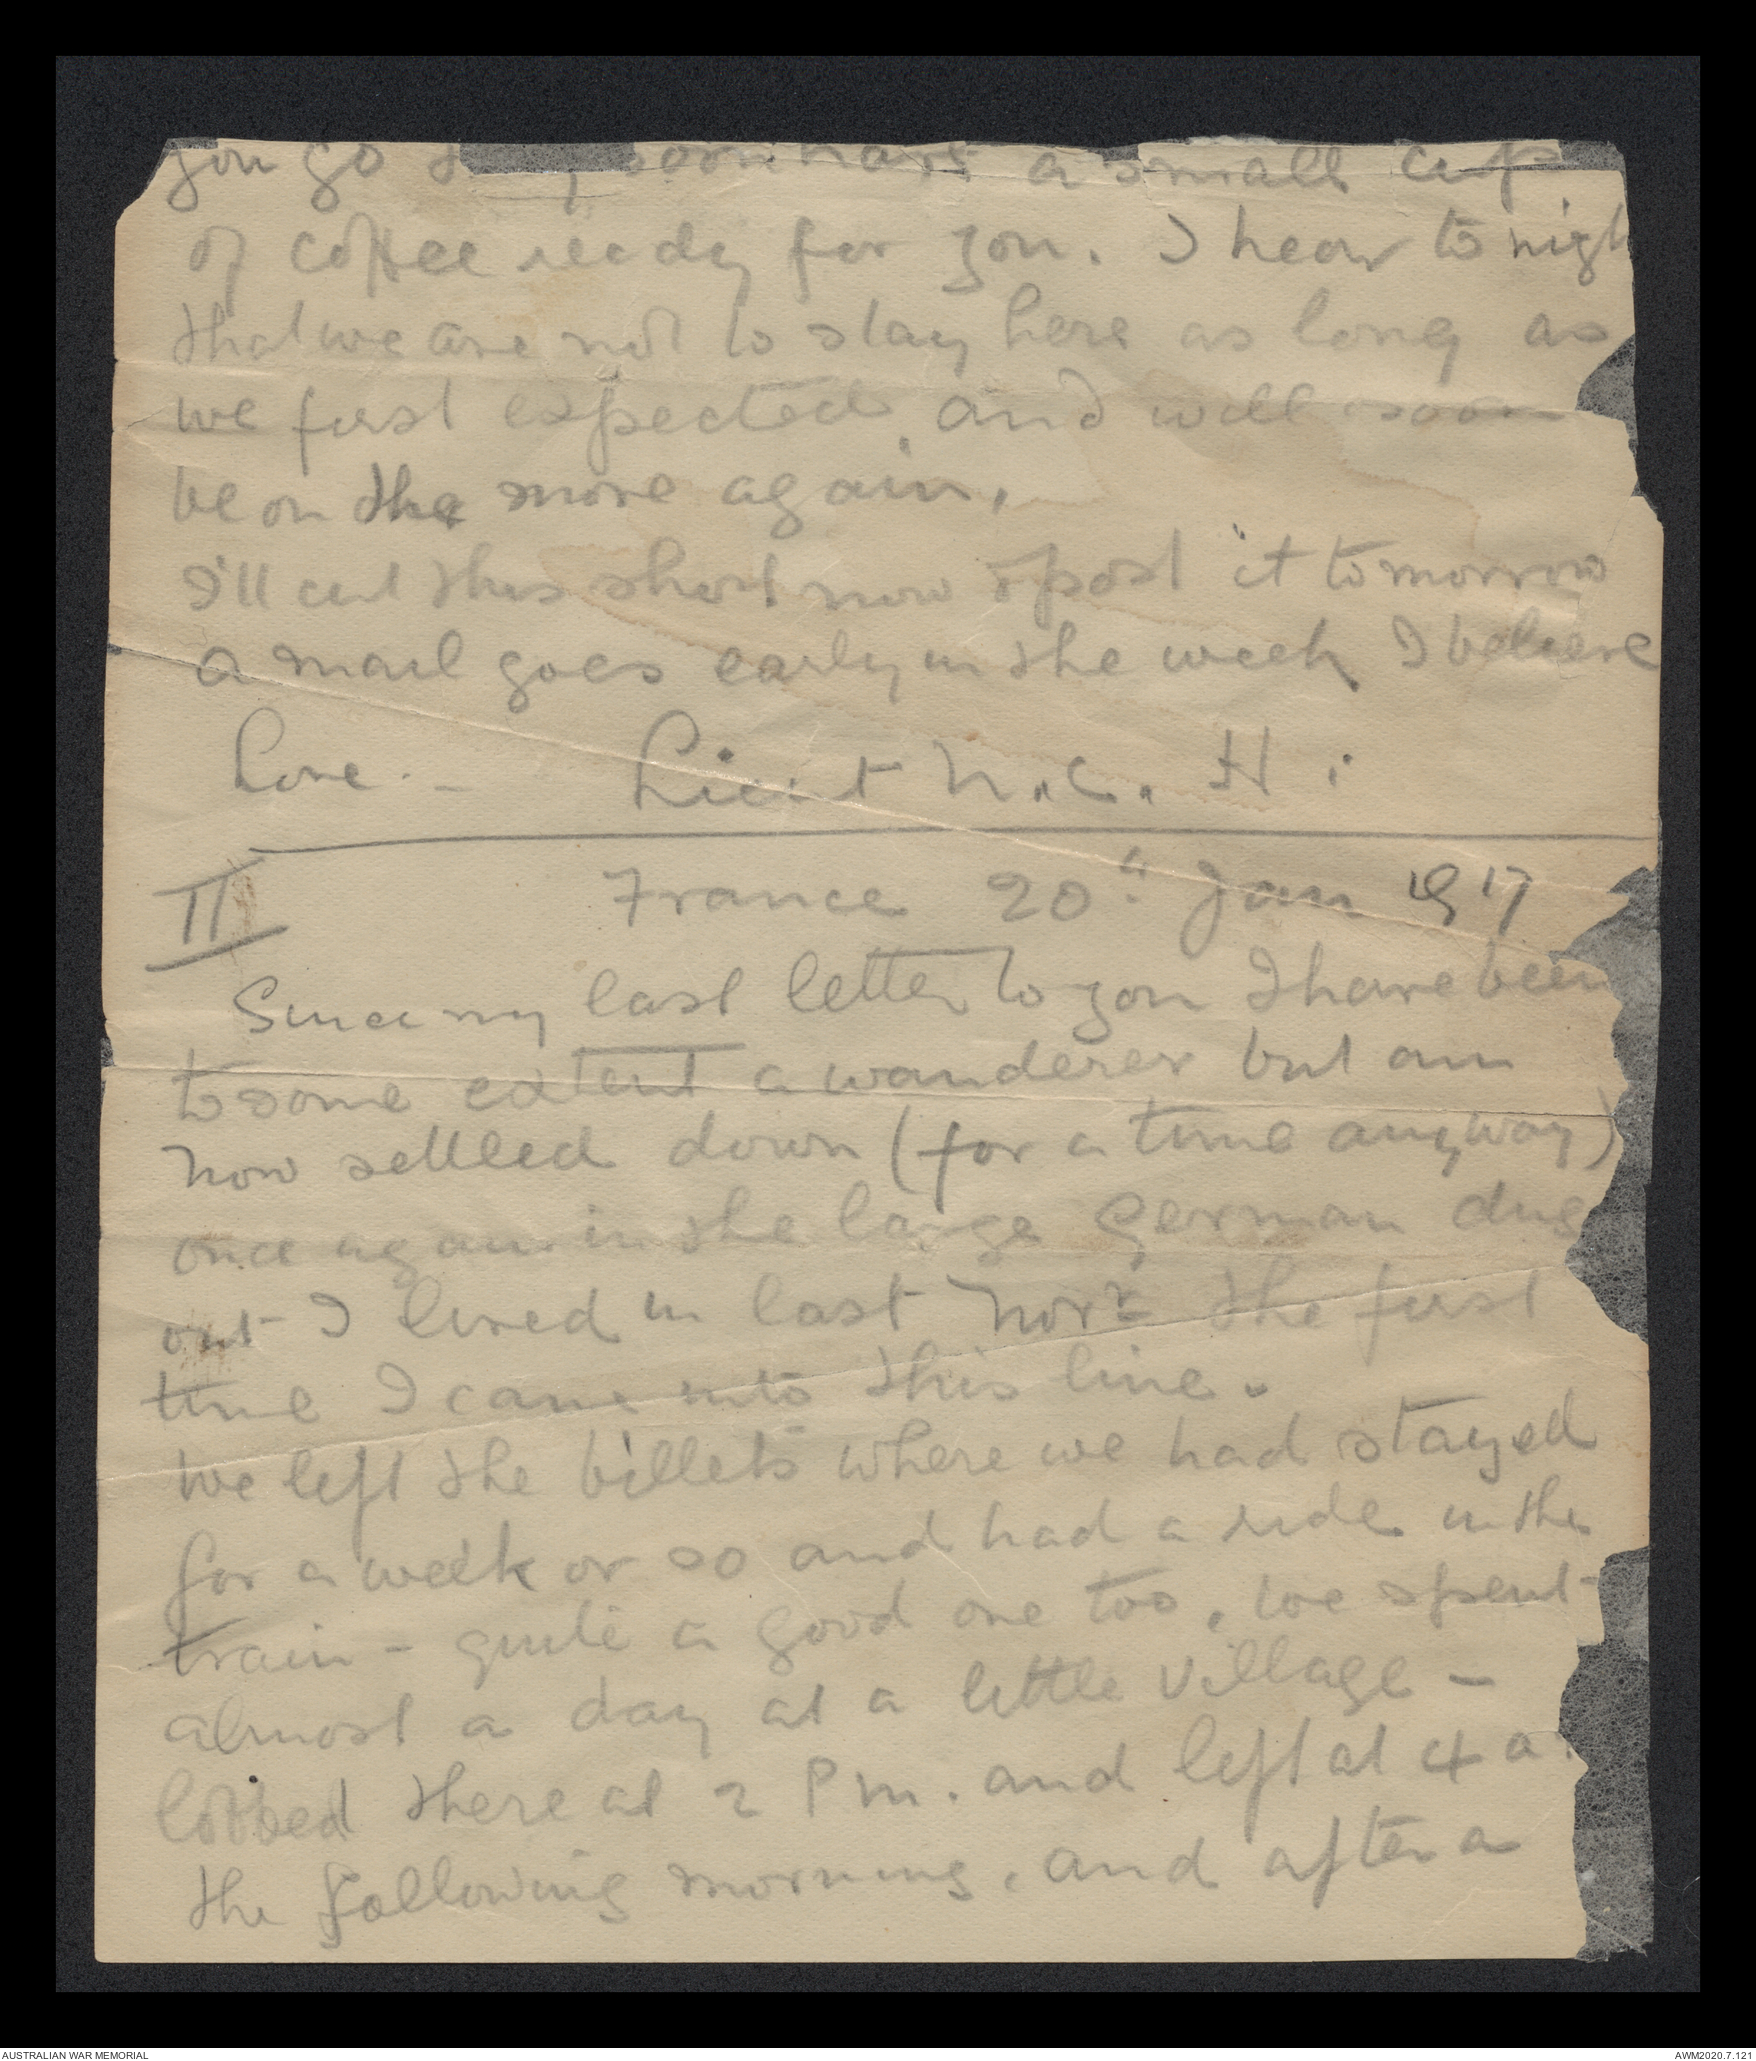 you go soon have a small cup
of coffee ready for you. I hear to nigh
that we are not to stay here as long as
we first expected, and will soon
be on the move again.
I'll cut this short now & post it tomorrow
a mail goes early in the week, I believe
Love. - Lieut N.C. H.
II France 20" Jan 1917
Since my last letter to you I have been
to some extent a wanderer but am
now settled down (for a time anyway)
once again in the large German dug
out I lived in last Novr the first
time I came into this line.
We left the billets where we had stayed
for a week or so and had a ride in the
train - quite a good one too, we spent
almost a day at a little village -
lobbed there at 2 Pm. and left at 4 a
the following morning. and after a
AUSTRALIAN WAR MEMORIAL
AWM2020.7.121